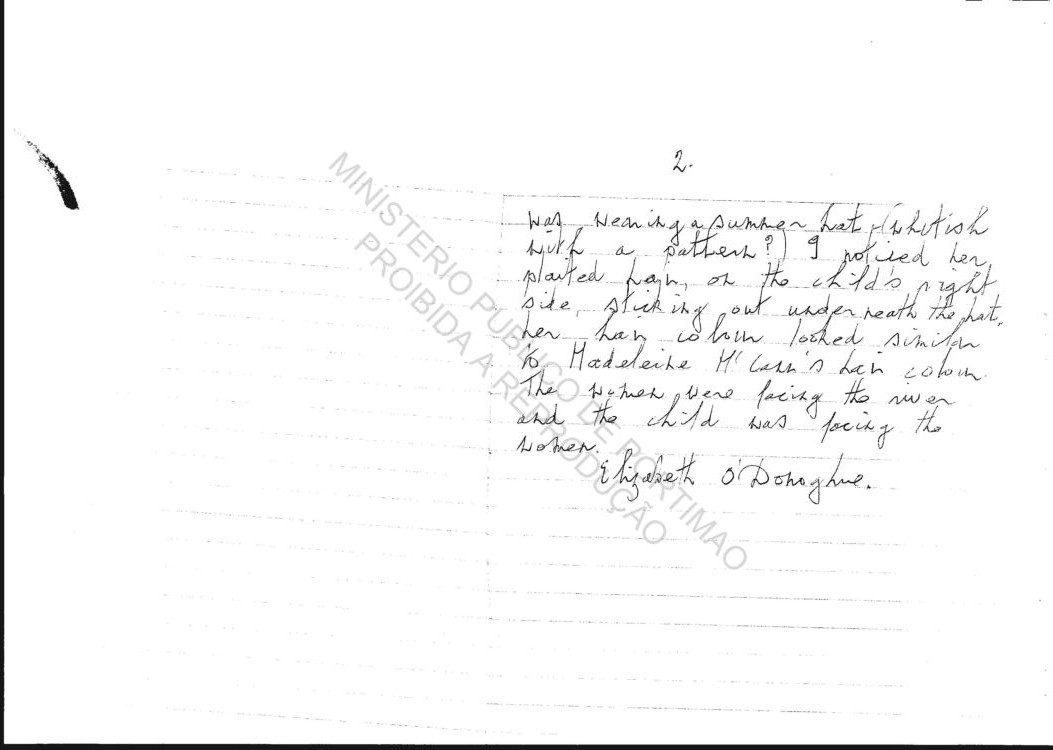 2.
was wearing a summer hat, (whitish
with a pattern?) I noticed her
plaited hair, on the child's right
side, sticking out underneath the hat,
her hair colour looked similar
to Madeleine McCann's hair colour.
The women were facing the river
and the child was facing the
women.
Elizabeth O'Donoghue.
MINISTERIO PUBLICO DE PORTIMAO
PROIBIDA A REPRODUÇÃO